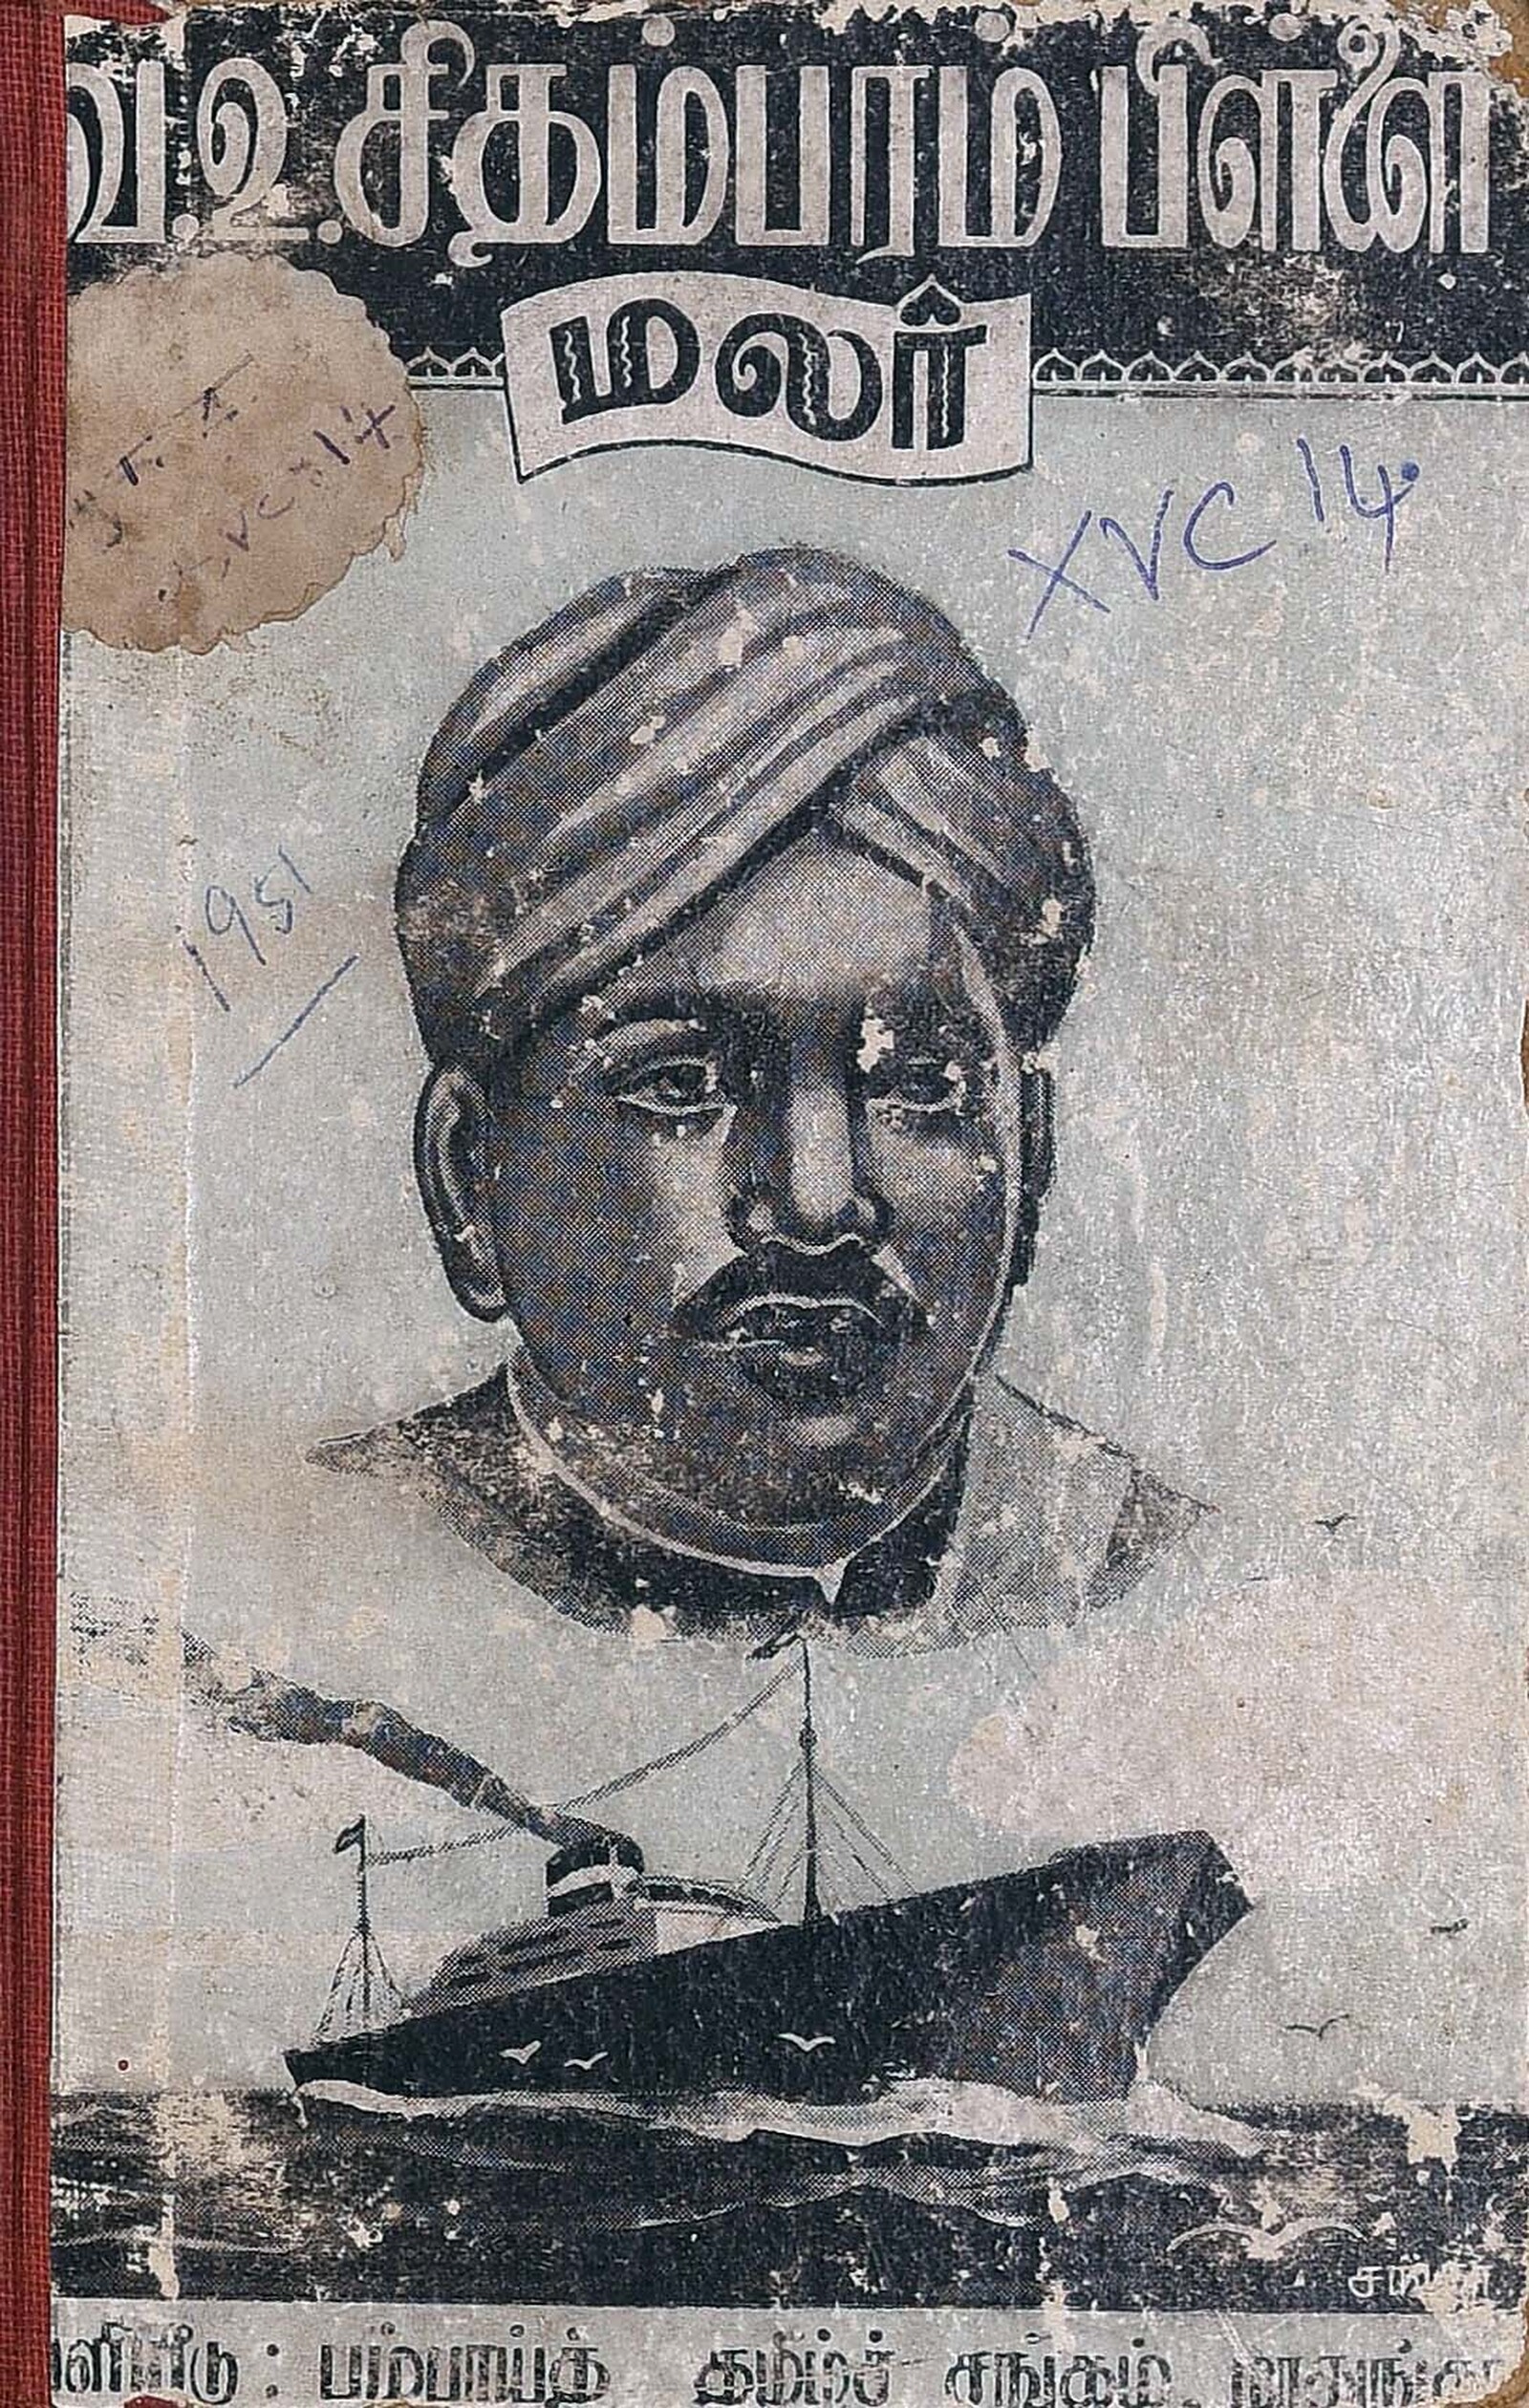 வ.உ.சிதம்பரம் பிள்ளை
மலர்
XVC 14
XVC 14
1951
பம்பாய்த் தமிழ்ச் சங்கம்,